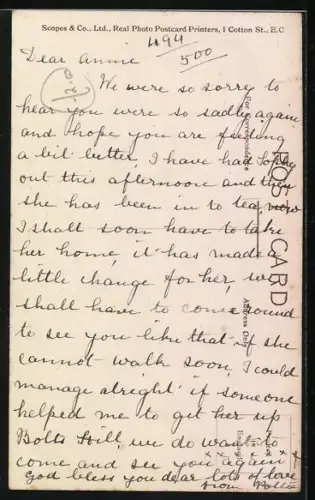 Scopes & Co., Ltd., Real Photo Postcard Printers, 1 Cotton St., E.C
494
500
Dear Annie
We were so sorry to
hear you were so sadly again
and hope you are feeling
a bit better, I have had
out this afternoon and
she has been in to tea, now
I shall soon have to take
her home, it has made a
little change for her, we
shall have to come round
to see you like that if she
cannot walk soon, I could
manage alright if someone
helped me to get her up
Bolts Hill, we do want to
come and see you again
x x x x x x x
God bless you dear lots of love
from
POST CARD
For Correspondence
Address Only